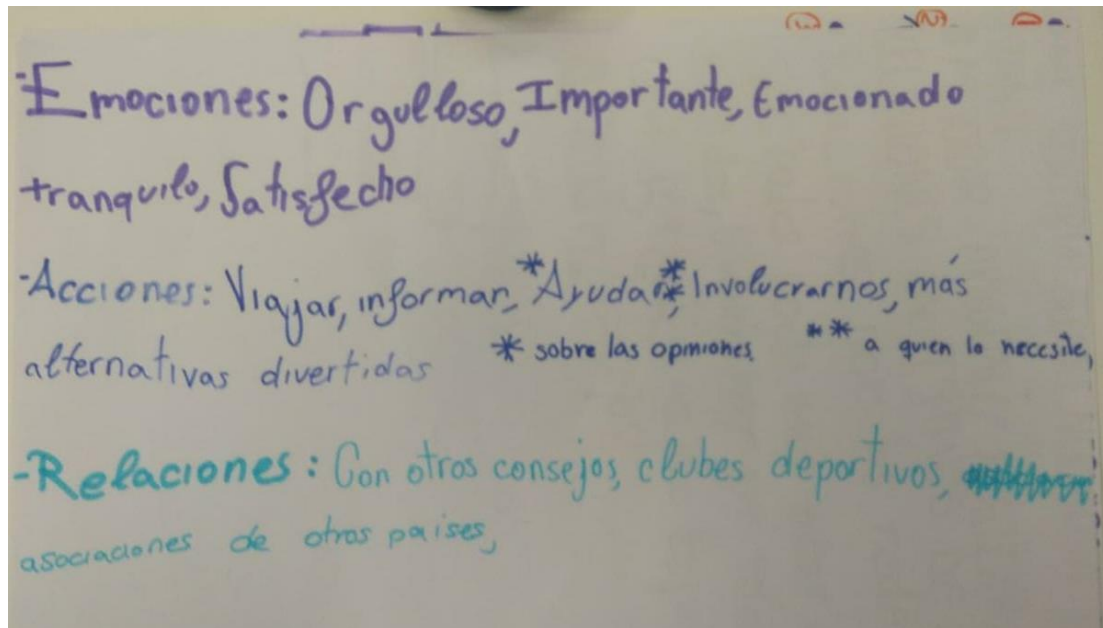 -Emociones: Orgulloso, Importante, Emocionado
tranquilo, Satisfecho
-Acciones: Viajar, informar, *Ayudar,** Involucrarnos, más
alternativas divertidas * sobre las opiniones ** a quien lo necesite,
-Relaciones: Con otros consejos, clubes deportivos,
asociaciones de otros paises,